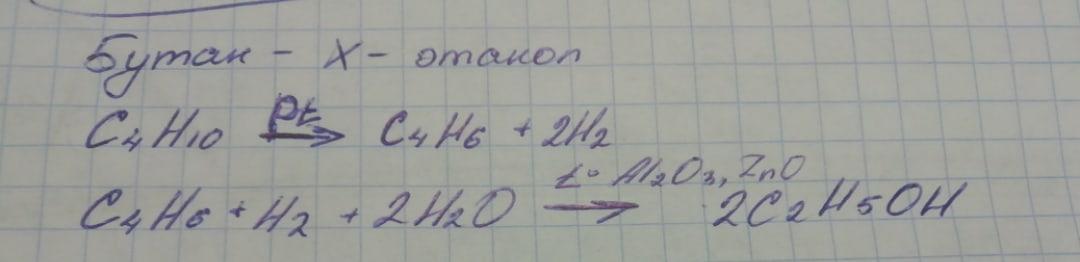 Бутан - X - этанол
C₄H₁₀ Pt → C₄H₆ + 2H₂
C₄H₆ + H₂ + 2H₂O t° Al₂O₃, ZnO → 2C₂H₅OH